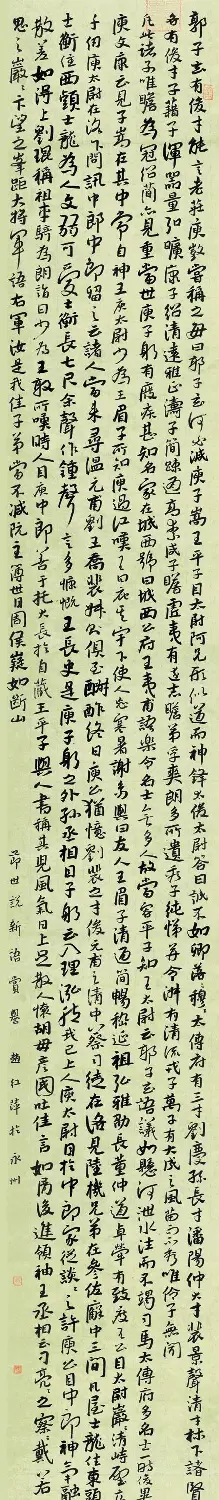 郭子玄有俊才能言老莊庾敳嘗稱之每曰郭子玄何必減庾子嵩王平子目太尉阿兄形似道而神鋒太俊太尉答曰誠不如卿落落穆穆太傅府有三才劉慶孫長才潘陽仲大才裴景聲清才林下諸賢
各有俊才子籍子渾器量弘曠康子紹清遠雅正濤子簡疏通高素咸子瞻虛夷有遠志瞻弟孚爽朗多所遺秀子純悌並令淑有清流戎子萬子有大成之風苗而不秀唯伶子無聞
凡此諸子唯瞻為冠紹簡亦見重當世庾子躬有廢疾甚知名家在城西號曰城西公府王夷甫語樂令名士無多人故當容平子知王太尉云郭子玄語議如懸河泄水注而不竭司馬太傅府多名士一時俊異
庾文康云見子嵩在其中常自神王庾太尉少為王眉子所知庾過江嘆王曰庇其宇下使人忘寒暑謝幼輿曰友人王眉子清通簡暢嵇延祖弘雅劭長董仲道卓犖有致度王公目太尉巖巖清峙壁立
千仞庾太尉在洛下問訊中郎中郎留之云諸人當來尋溫元甫劉王喬裴叔則俱至酬酢終日庾公猶憶劉裴之才俊元甫之清中蔡司徒在洛見陸機兄弟在參佐廨中三間瓦屋士龍住東頭
士衡住西頭士龍為人文弱可愛士衡長七尺餘聲作鐘聲言多慷慨王長史是庾子躬之外孫丞相目子躬云入理泓然我已上人庾太尉目中郎家從談談之許庾公目中郎神氣融
散差如得上劉琨稱祖車騎為朗詣曰少為王敦所嘆時人目庾中郎善于托大長於自藏王平子與人書稱其兒風氣日上足散人懷胡毋彥國吐佳言如屑後進領袖王丞相云刁玄亮之察察戴若
思之巖巖卞望之之峰距大將軍語右軍汝是我佳子弟當不減阮主簿世目周侯嶷如斷山
節世說新語賞譽 趙紅萍於永州